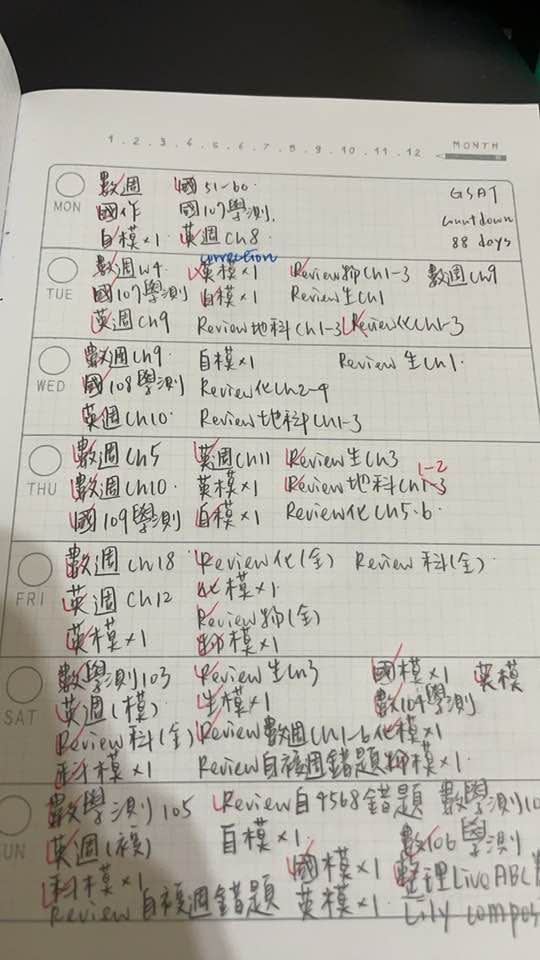 1 . 2 . 3 . 4 . 5 . 6 . 7 . 8 . 9 . 10 . 11 . 12 . MONTH
MON
數週 國 51-60.
國作 國107學測.
自模×1 英週ch8
GSAT
countdown
88 days
TUE
correction
數週w4 英模×1 Review物ch1-3 數週ch9
國107學測 自模×1 Review生ch1
英週ch9 Review地科ch1-3 Review化ch1-3
WED
數週ch9 自模×1 Review生ch1.
國108學測 Review化ch2-4
英週ch10. Review地科ch1-3
THU
數週ch5 英週ch11 Review生ch3
1-2
數週ch10 英模×1 Review地科ch1-3
國109學測 自模×1 Review化ch5.6
FRI
數週ch18 Review化(全) Review科(全).
英週ch12 化模×1.
Review物(全)
英模×1 物模×1
SAT
數學測103 Review生ch3 國模×1 英模
英週(模) 生模×1 數104學測
Review科(全) Review數週ch1-6 化模×1
科模×1 Review自複週錯題 物模×1.
SUN
數學測105 Review自4568錯題 數學測10
英週(複) 自模×1. 數106學測
科模×1 國模×1 整理LiveABC
Review自複週錯題 英模×1. Lily compos